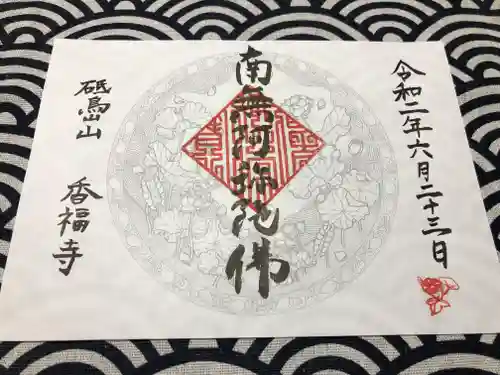 令和二年六月二十三日
南無阿弥陀佛
砥鳥山
香福寺